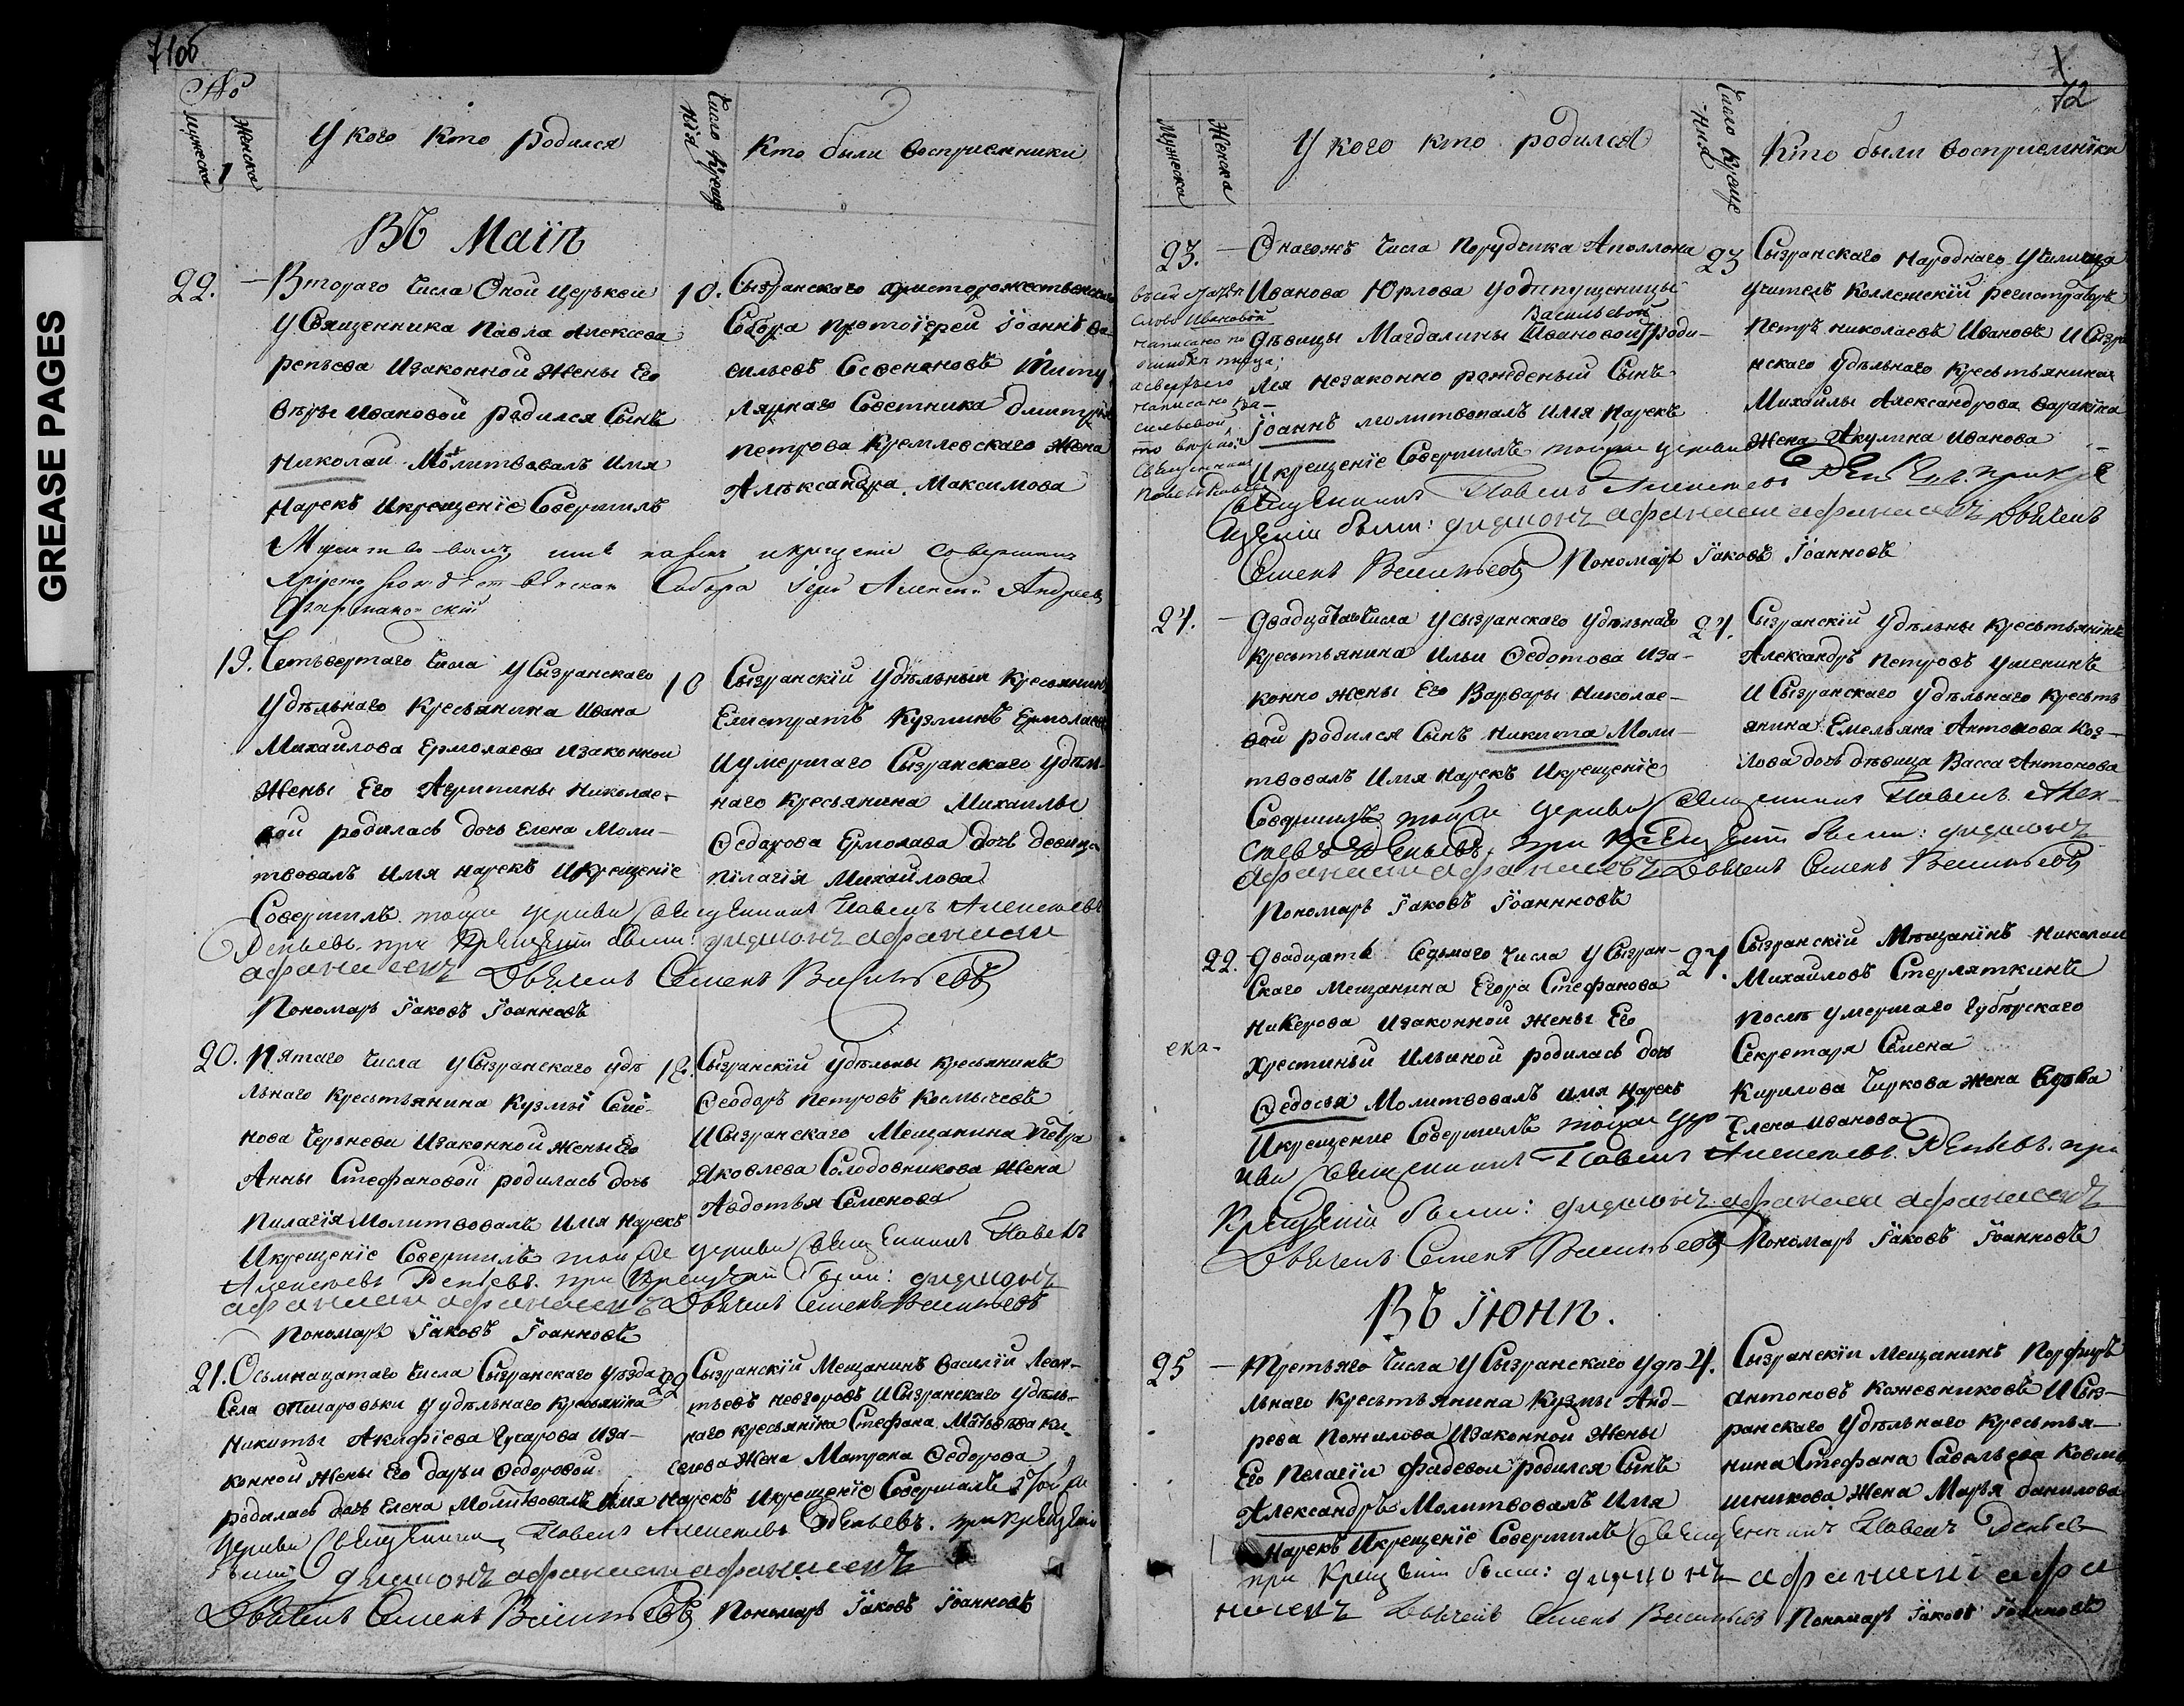 GREASE PAGES
71об
№
Мужеска
Женска
У кого кто родился
Число креще
нїя
Кто были восприемники
Въ Маїѣ
22.
Втораго числа Оной церькви
у Священника Павла Алексѣева
репьева и законной жены Его
Вѣры Ивановой родился Сынъ
Николай Молитвовалъ имя
Нарекъ и крещенїе Совершилъ
10.
Сызранскаго христорожественскаго
Собора протоїерей Їоаннъ ва-
сильевъ
Титу
лярнаго Советника дмитрїя
петрова Кремлевскаго жена
Александра Максимова
Молитвовалъ имя нарекъ и крещенїе совершилъ
Собора Їерей Алексей Андреевъ
19.
Четьвертаго числа у Сызранскаго
Удѣльнаго Кресьянина Ивана
Михайлова Ермолаева и законной
жены Его Агрипины Николае-
вой родилась дочь Елена Моли-
твовалъ имя нарекъ и крещенїе
Совершилъ тойже церкви Священникъ Павелъ Алексѣевъ
Репьевъ. при крещенїи были: диаконъ афанасии
афанасиевъ Дьячекъ Семенъ Васильевъ
Пономарь Їаковъ Їоанновъ
10
Сызранскїй Удѣльный Кресьянинъ
Елистратъ Кузминъ Ермолаевъ
И умершаго Сызранскаго Удѣль-
наго Кресьянина Михайлы
Ѳедорова Ермолаева дочь девица
Пїлагїя Михайлова
20.
Пятаго числа у Сызранскаго удѣ
льнаго Кресьтьянина Кузмы Семе-
нова и законной жены Его
Анны Стефановой родилась дочь
Пилагїя Молитвовалъ имя Нарекъ
И крещенїе Совершилъ тойже церкви Священникъ Павелъ
Алексѣевъ Репьевъ. при крещенїи были: диаконъ
афанасии афанасиевъ Дьячекъ Семенъ Васильевъ
Пономарь Їаковъ Їоанновъ
12.
Сызранскїй Удѣльны Кресьянинъ
Ѳеодоръ Петровъ
И Сызранскаго Мещанина Петра
Яковлева Солодовникова жена
Авдотья Семенова
21.
Осьмнацатаго числа Сызранскаго уѣзда
Села у удѣльнаго Кресьянїна
Никиты Акифїева Гусарова и за-
конной жены Его дарьи Ѳедоровой
родилась дочь Елена Молитвовалъ имя Нарекъ И крещенїе Совершилъ тойже
церкви Священникъ Павелъ Алексѣевъ Репьевъ. при крещенїи
были диаконъ афанасии афанасиевъ
Дьячекъ Семенъ Васильевъ Пономарь Їаковъ Їоанновъ
22
Сызранскїй Мещанинъ Василїй Леон-
тьевъ И Сызранскаго Удѣль-
наго кресьянїна Стефана Матвѣева Ки-
селева жена Матрона Ѳедорова
72
Мужеска
Женска
У кого кто родился
Число креще
нїя
Кто были восприемнїки
23.
Онагожъ числа Порудчика Аполлона
Иванова Юрлова у отпущеницы
Васильевой
Дѣвицы Магдалины Ивановой роди-
лся незаконно рожденый Сынъ
Їоаннъ молитвовалъ имя Нарекъ
И крещенїе Совершилъ тойже церкви
Священникъ Павелъ Алексѣевъ Репьевъ. при кре
щенїи были: диаконъ афанасии афанасиевъ Дьячекъ
Семенъ Васильевъ Пономарь Їаковъ Їоанновъ
слово Ивановой
написано по
ошибкѣ
а сверьхъ
написано Ва-
сильевой
то вѣрно
Священникъ
Павелъ
23
Сызранскаго Народнаго Училища
учитель Коллежскїй регистраторъ
Петръ Николаевъ Ивановъ И Сызра
нскаго Удѣльнаго Кресьтьянина
Михайлы Александрова
жена Акулина Иванова
24.
у Сызранскаго Удѣльнаго
Кресьтьянина Ильи Ѳедотова и за-
конно жены Его Варвары Николае-
вой родился Сынъ Никита Моли-
твовалъ имя нарекъ и крещенїе
Совершилъ тойже церкви Священникъ Павелъ Алек-
сѣевъ Репьевъ. при крещенїи были: диаконъ
афанасии афанасиевъ Дьячекъ Семенъ Васильевъ
Пономарь Їаковъ Їоаннновъ
27.
Сызранскїй Удѣльны Кресьтьянїнъ
Александръ Петровъ
И Сызранскаго Удѣльнаго Кресьтъ
янина Емельяна Антонова Коз-
лова дочь дѣвица Васса Антонова
22.
Двадцать Седьмаго числа у Сызран-
Скаго Мещанина Егора Стефанова
Никерова и законной жены Его
ека-
Хрестиньи Ильиной родилась дочь
Ѳедосья Молитвовалъ имя Нарекъ
И крещение Совершилъ тойже цер
кви Священникъ Павелъ Алексѣевъ Репьевъ. при
крещенїи были: диаконъ афанасии афанасиевъ
Дьячекъ Семенъ Васильевъ Пономарь Їаковъ Їоанновъ
27.
Сызранскїй Мѣщанїнъ Николай
Михайловъ Стерляткинъ
послѣ умершаго Губернскаго
Секретаря Семена
Кирилова Чиркова жена Вдова
Елена Иванова
Въ Їюнѣ.
25
Третьяго числа у Сызранскаго Удѣ
льнаго Кресьтьянина Кузмы Анд-
реева Пожилова и законной жены
Его Пелагїи Фадевой родился Сынъ
Александръ Молитвовалъ имя
Нарекъ И крещенїе Совершилъ Священникъ Павелъ Репьев
при крещенїи были: диаконъ афанасиї афа
насиевъ Дьячекъ Семенъ Васильевъ Пономарь Їаковъ Їоанновъ
4.
Сызранскїй Мещанинъ Порфиръ
Антоновъ Кожевниковъ И Сыз-
ранскаго Удѣльнаго Кресьтья-
нина Стефана Савельева
жена Марья данилова